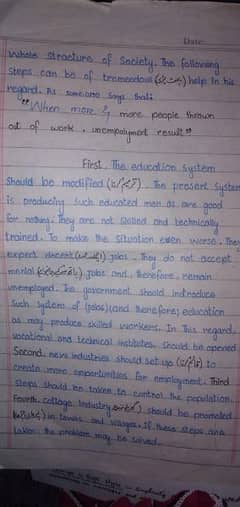 Date:
whole structure of Society. The following
steps can be of tremendous help in his
regard. As someone says that:
"When more & more people thrown
out of work, unemployment result"
First, The education system
Should be modified. The present system
is producing such educated men as are good
for nothing. They are not skilled and technically
trained. To make the situation even worse. They
expect decent jobs. They do not accept
menial jobs and, therefore, remain
unemployed. The government should introduce
Such system of (jobs) (and therefore) education
as may produce skilled workers. In this regard,
vocational and technical institutes should be opened
Second, new industries should set up to
create more opportunities for employment. Third
steps should be taken to control the population.
Fourth, cottage industry should be promoted
in towns and villages. If these steps are
taken the problem may be solved.